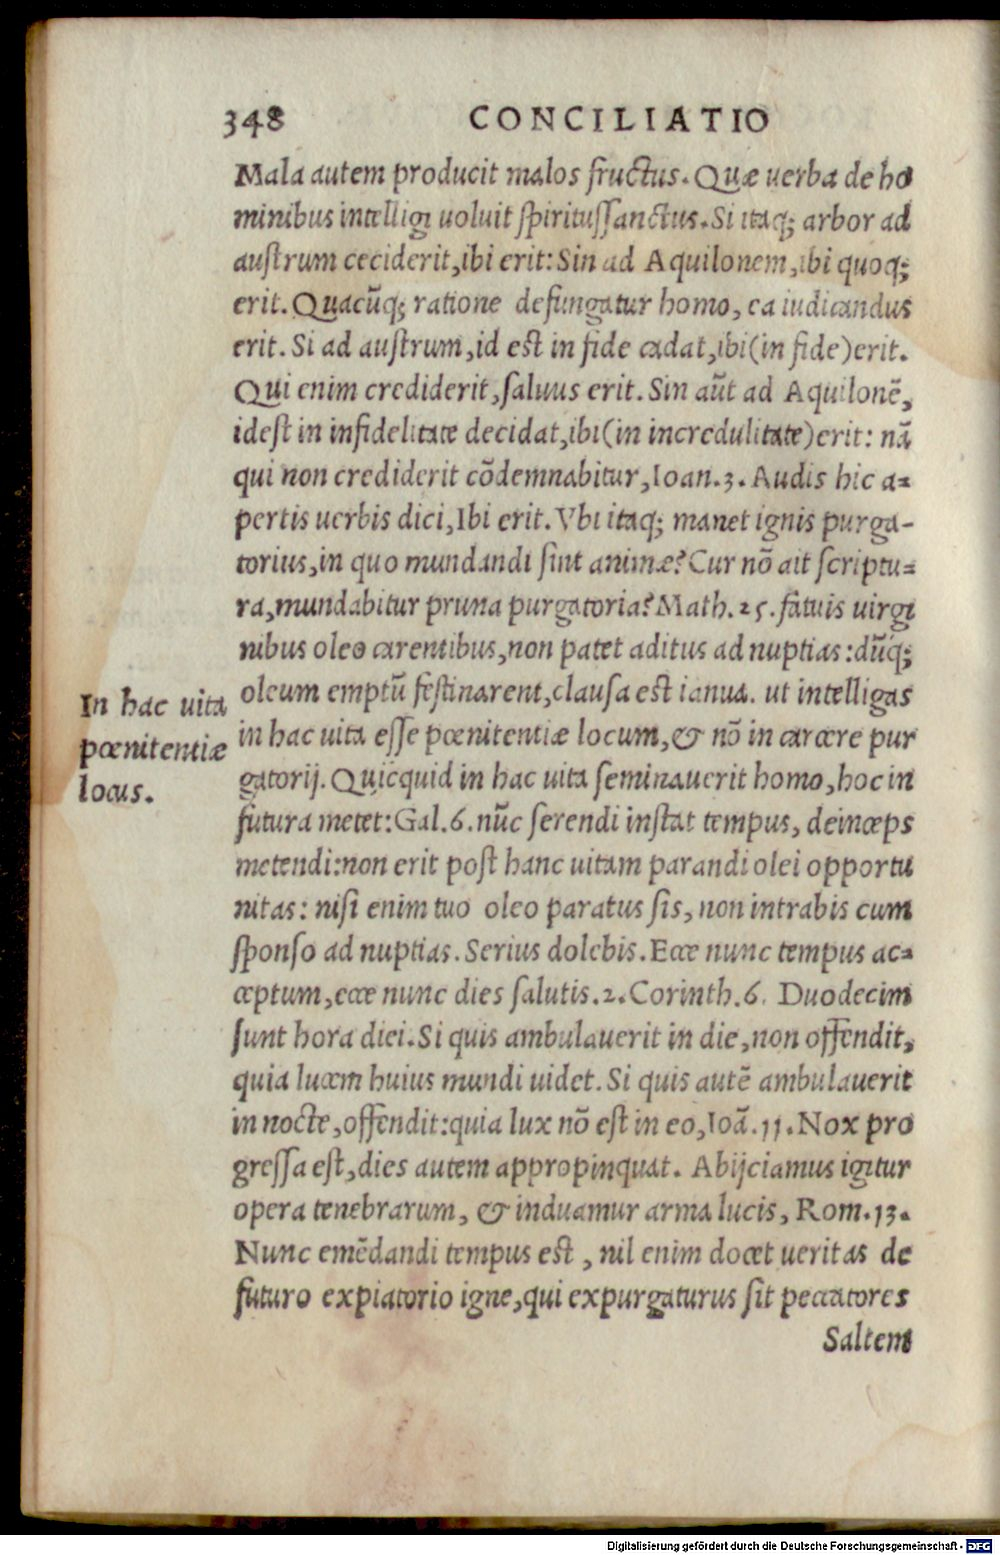 348 CONCILIATIO
Mala autem producit malos fructus. Quæ uerba de ho
minibus intelligi uoluit spiritussanctus. Si itaq; arbor ad
austrum ceciderit, ibi erit: Sin ad Aquilonem, ibi quoq;
erit. Quacũq; ratione defungatur homo, ea iudicandus
erit. Si ad austrum, id est in fide cadat, ibi (in fide) erit.
Qui enim crediderit, saluus erit. Sin aũt ad Aquilonẽ,
idest in infidelitate decidat, ibi (in incredulitate) erit: nã
qui non crediderit cõdemnabitur, Ioan. 3. Audis hic a=
pertis uerbis dici, Ibi erit. Vbi itaq; manet ignis purga-
torius, in quo mundandi sint animæ? Cur nõ ait scriptu=
ra, mundabitur pruna purgatoria? Math. 25. fatuis uirgi
nibus oleo carentibus, non patet aditus ad nuptias: dũq;
oleum emptũ festinarent, clausa est ianua. ut intelligas
In hac uita
pœnitentiæ
locus.
in hac uita esse pœnitentiæ locum, & nõ in carcere pur
gatorij. Quicquid in hac uita seminauerit homo, hoc in
futura metet: Gal. 6. nũc serendi instat tempus, deinceps
metendi: non erit post hanc uitam parandi olei opportu
nitas: nisi enim tuo oleo paratus sis, non intrabis cum
sponso ad nuptias. Serius dolebis. Ecce nunc tempus ac=
ceptum, ecce nunc dies salutis. 2. Corinth. 6. Duodecim
sunt hora diei. Si quis ambulauerit in die, non offendit,
quia lucem huius mundi uidet. Si quis autẽ ambulauerit
in nocte, offendit: quia lux nõ est in eo, Ioã. 11. Nox pro
gressa est, dies autem appropinquat. Abijciamus igitur
opera tenebrarum, & induamur arma lucis, Rom. 13.
Nunc emẽdandi tempus est, nil enim docet ueritas de
futuro expiatorio igne, qui expurgaturus sit peccatores
Saltem
Digitalisierung gefördert durch die Deutsche Forschungsgemeinschaft - DFG